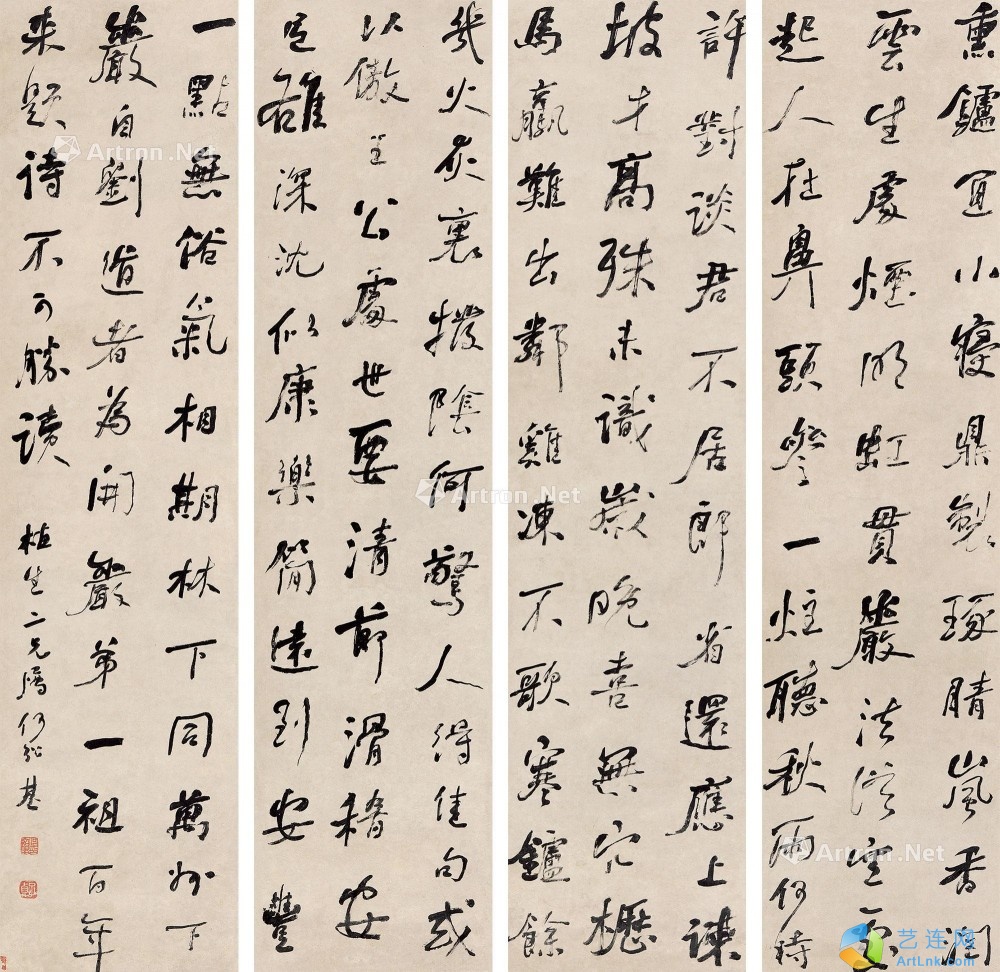 熏鑪宜小寢鼎製琢晴嵐香潤
雲生處煙明虹貫巖法從空處
起人在鼻頭參一炷聽秋雨何時
許對談君不居郎省還應上諫
坡才高殊未識歲晚喜無它櫪
馬羸難出鄰雞凍不歌寒鑪餘
幾火灰裏撥陰何驚人得佳句或
以傲王公處世要清節滑稽安
足雄深沈似康樂簡遠到安豐
一點無俗氣相期林下同萬州下
巖自劉道者為開巖第一祖百年
來題詩不可勝讀 生二兄屬 何紹基
Artron.Net
Artron.Net
Artron.Net
艺连网
ArtLnk.com